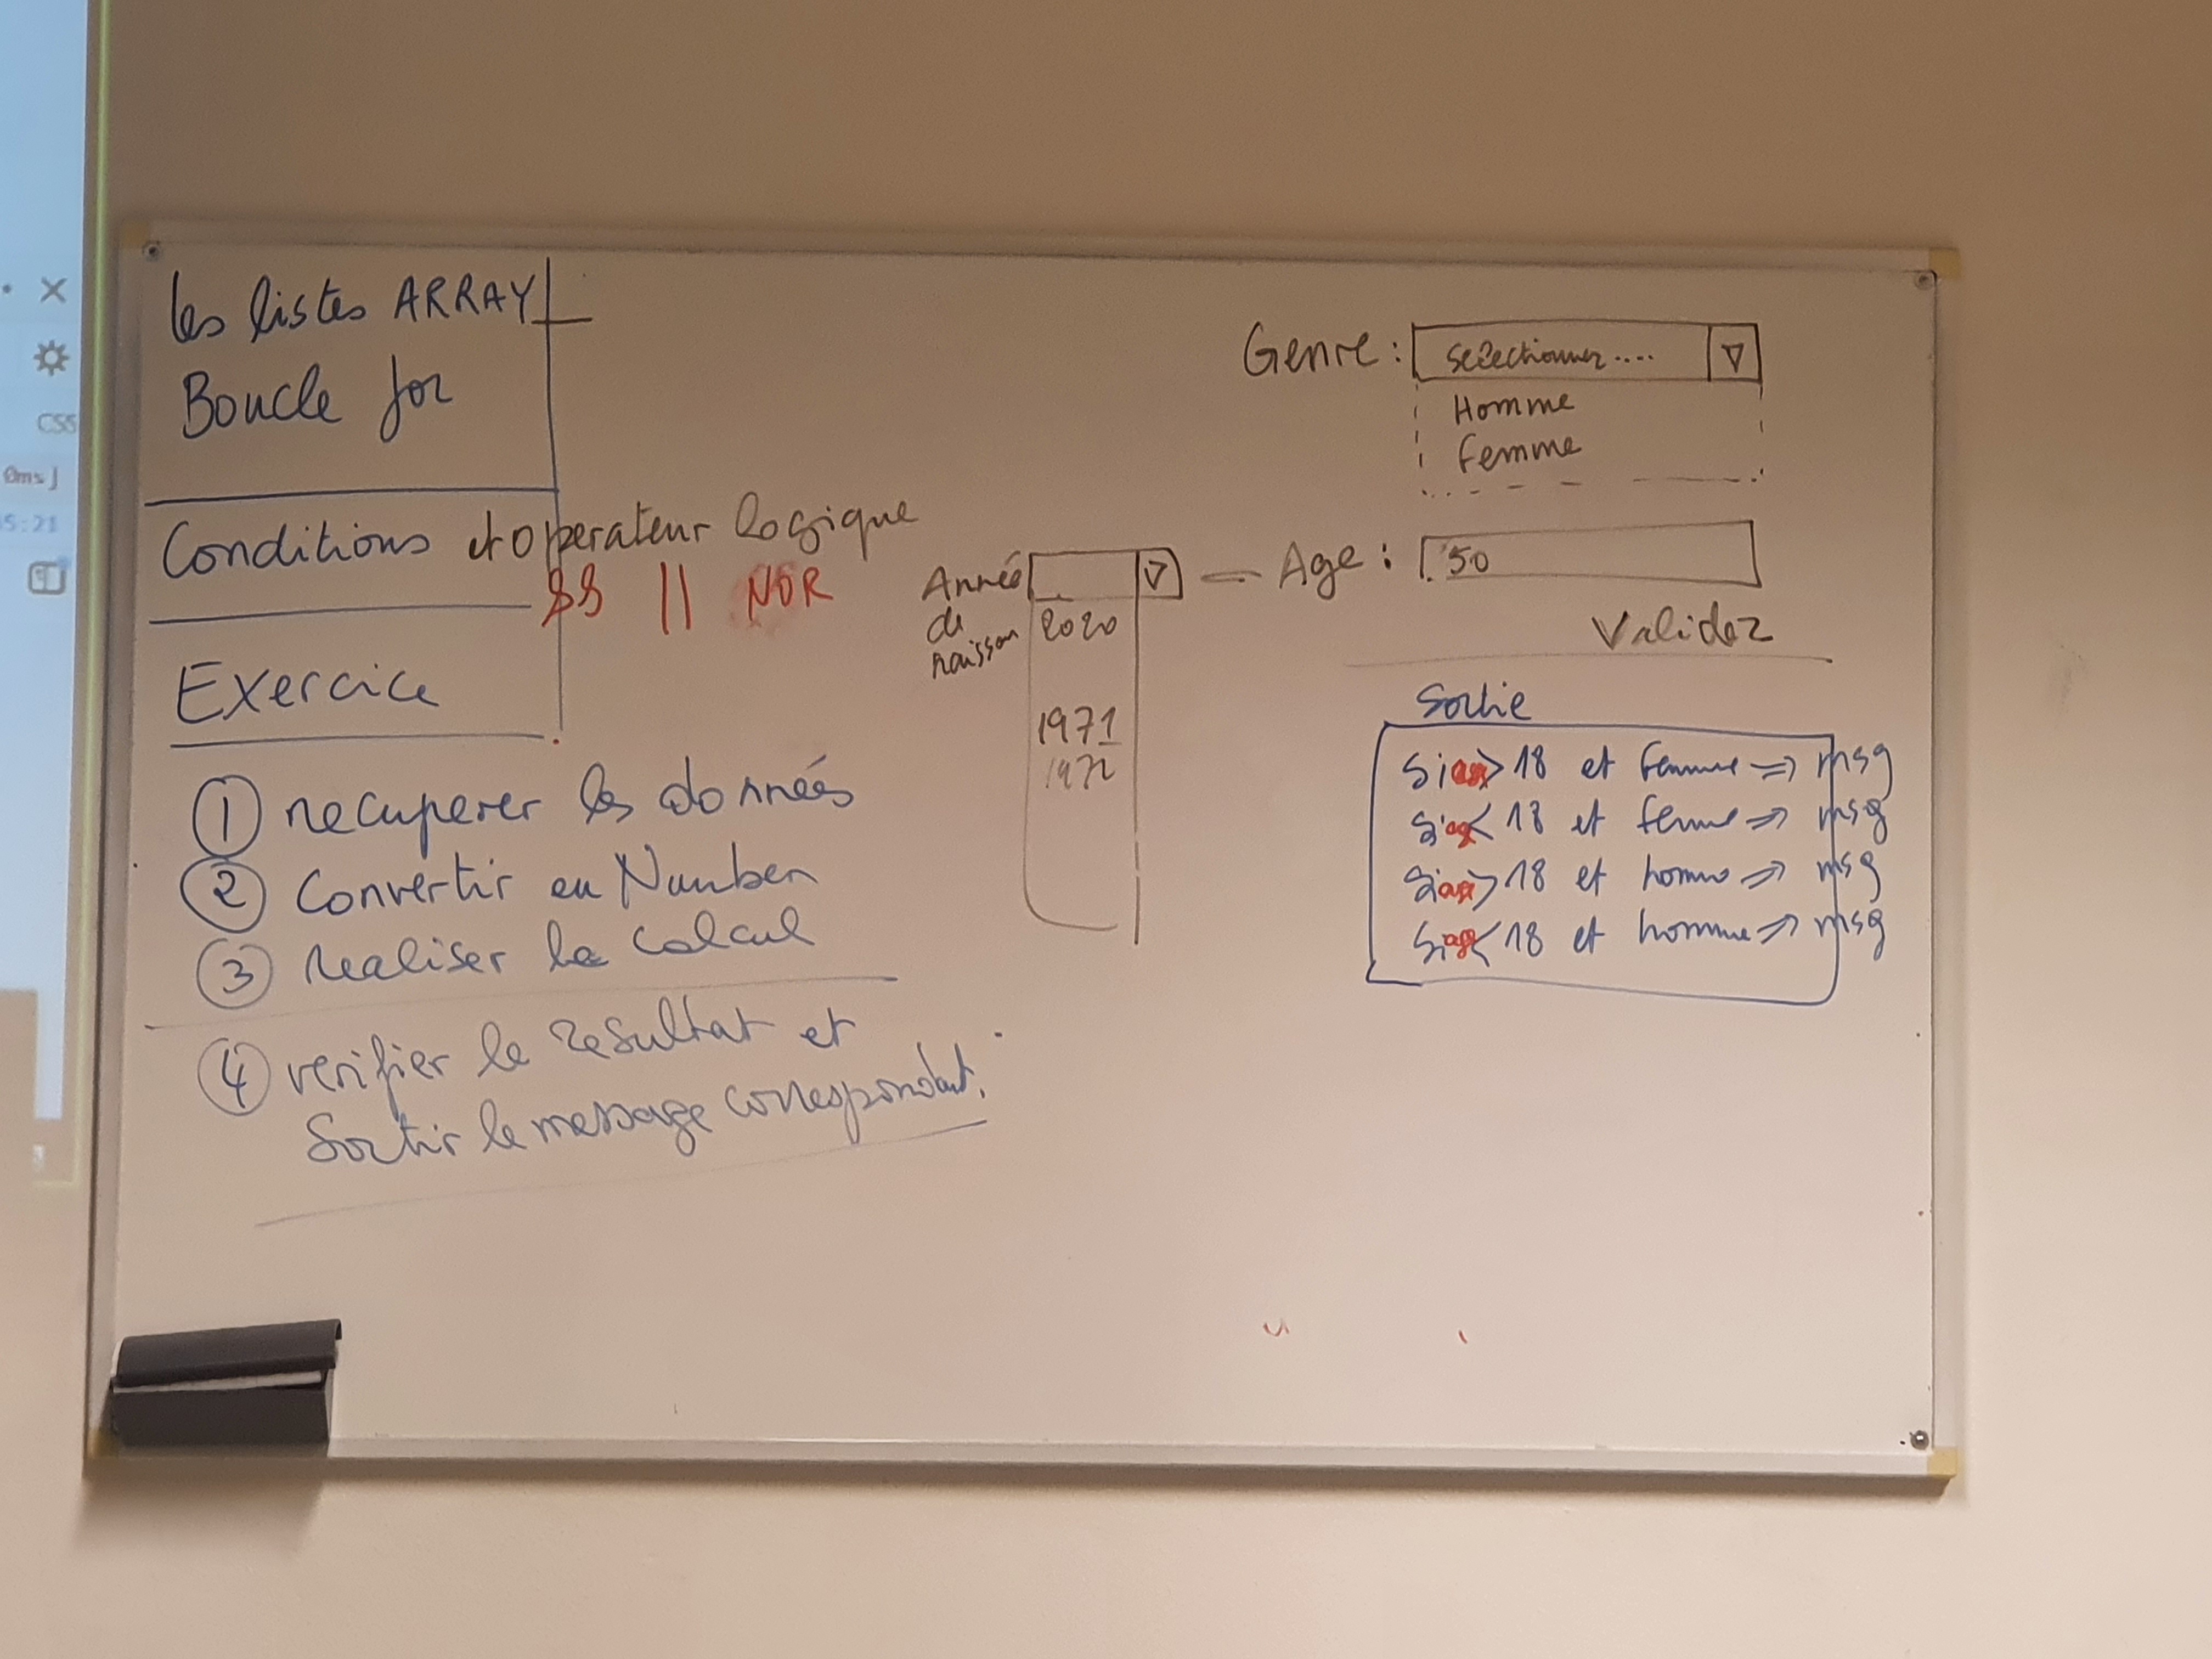 les listes ARRAY
Boucle for
Conditions et operateur logique
&& || NOR
Exercice
① recuperer les données
② Convertir en Number
③ realiser le calcul
④ verifier le resultat et
Sortir le message correspondant.
Genre : Selectionner .... ▽
Homme
Femme
Année de naissan
▽
2020
1971
1972
Age : 50
Validez
Sortie
Si age > 18 et femme => msg
Si age < 18 et femme => msg
Si age > 18 et homme => msg
Si age < 18 et homme => msg
CSS
0ms]
5:21